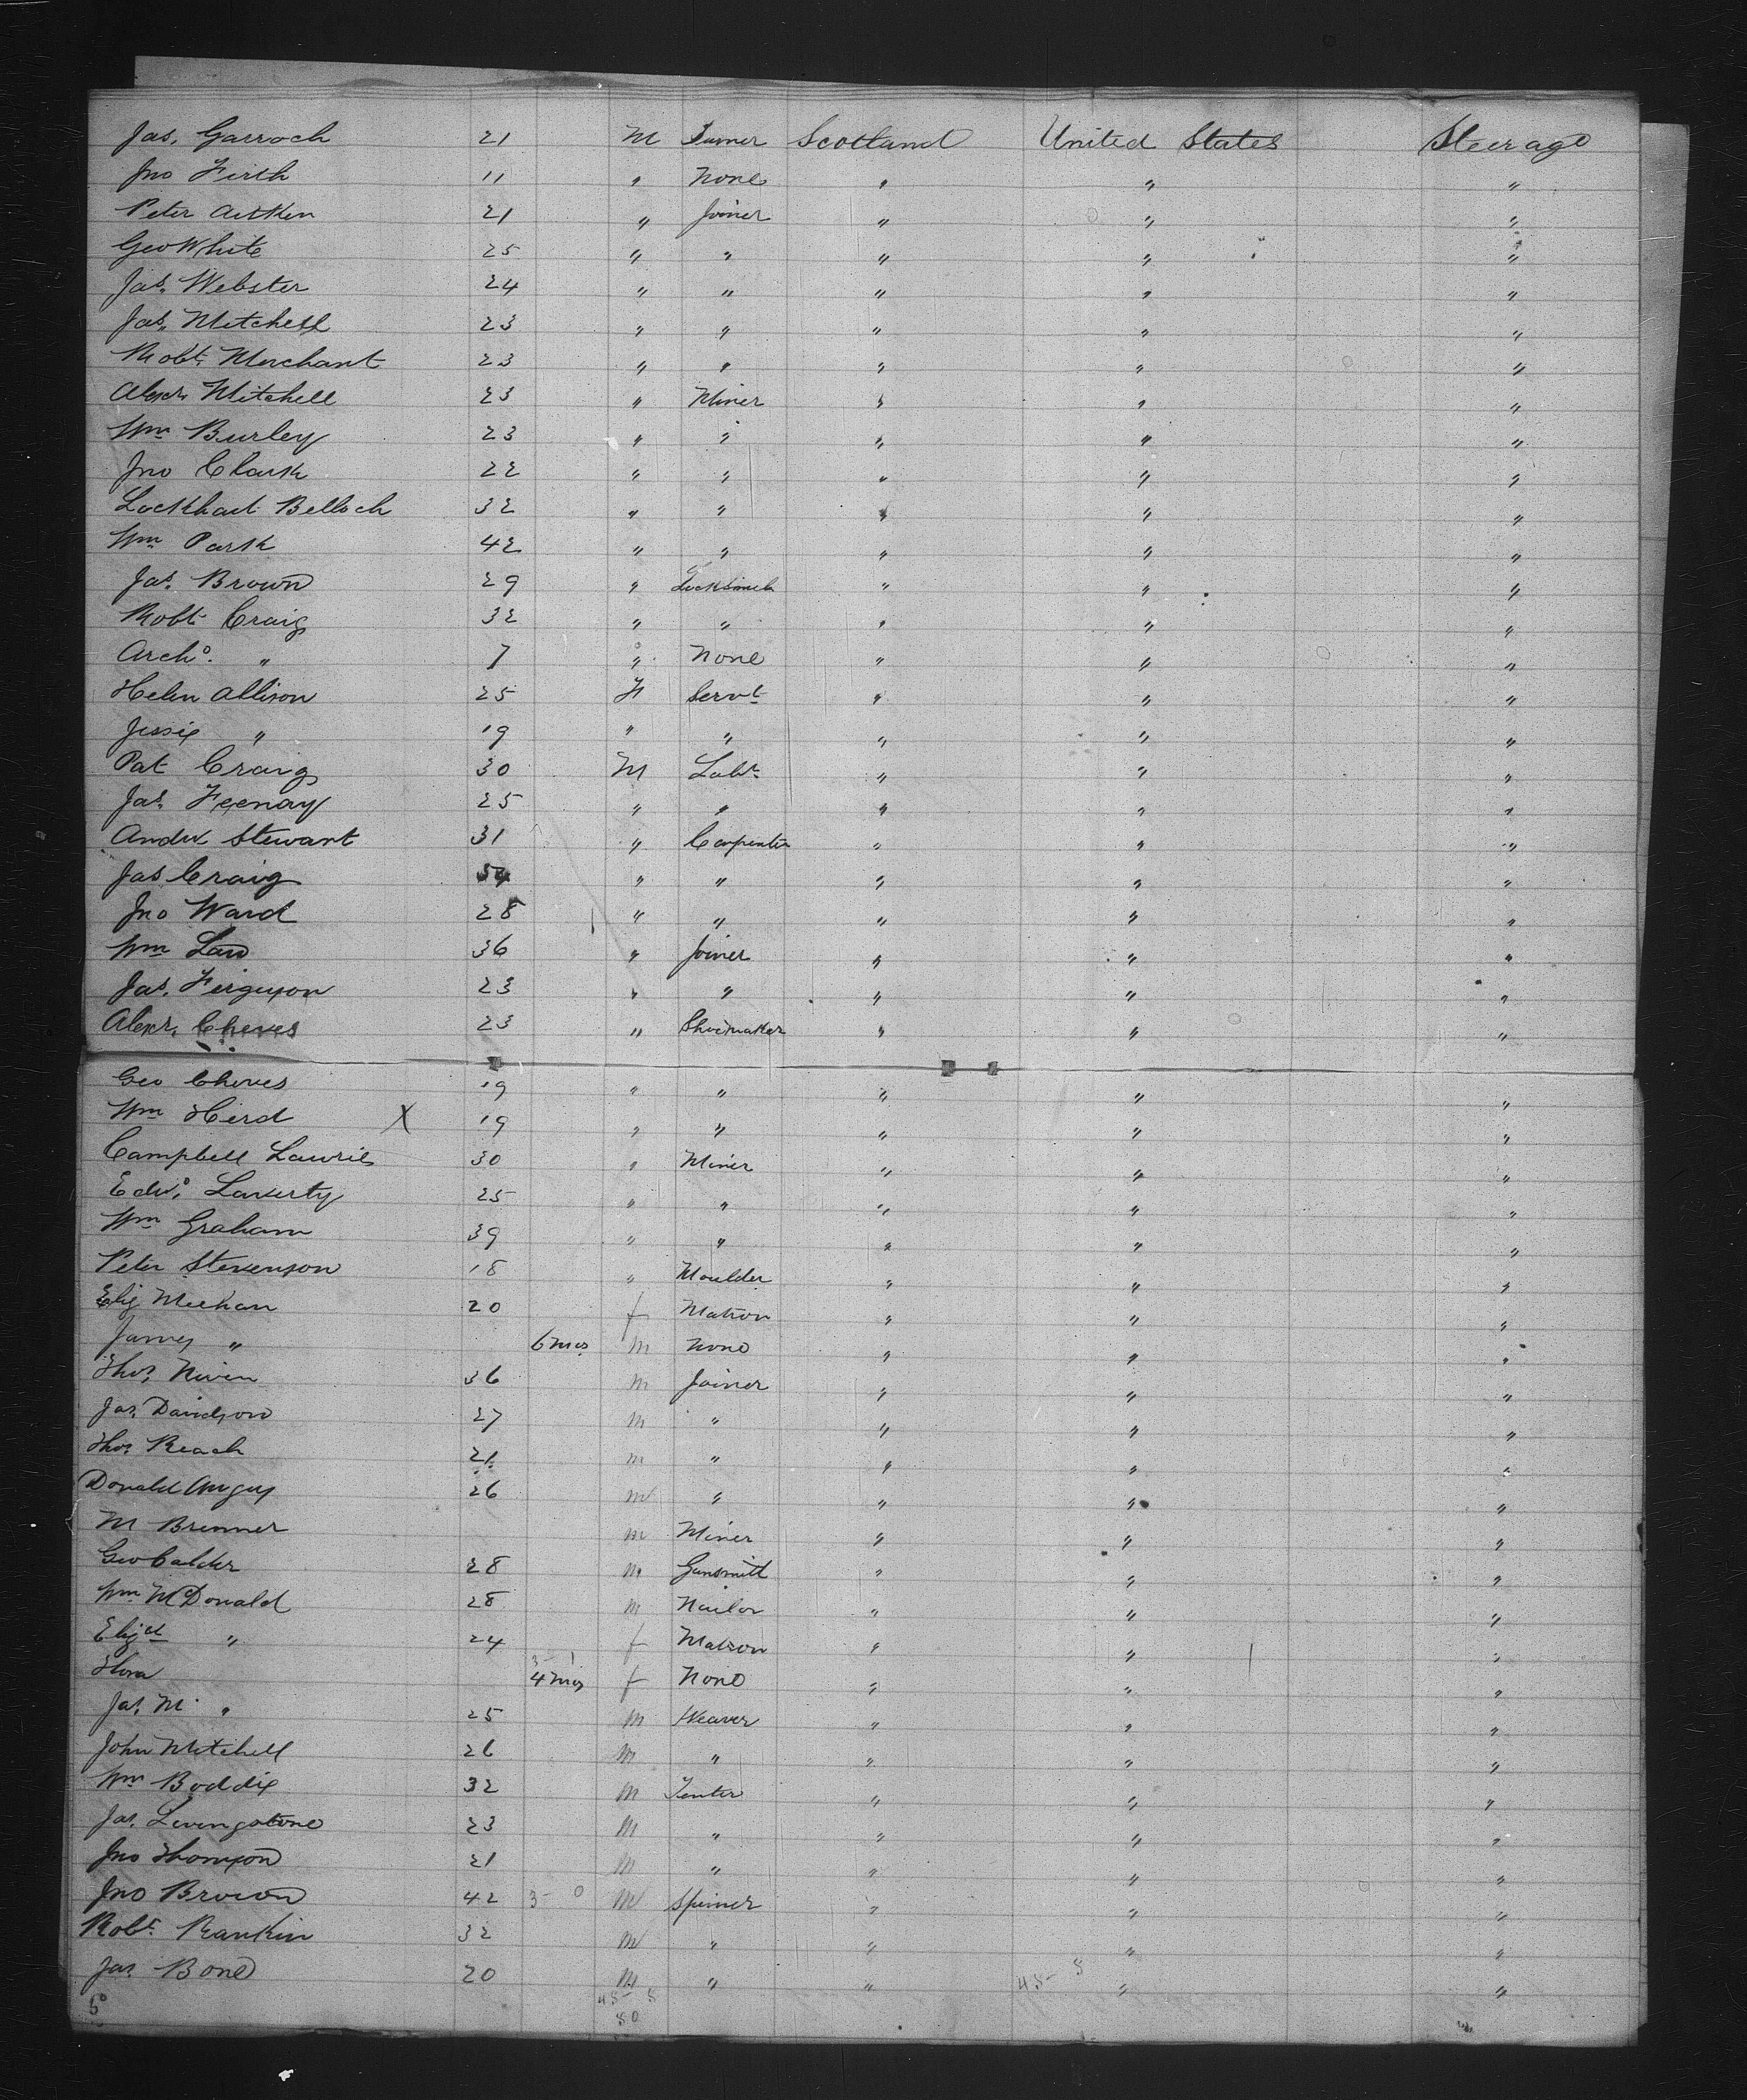 Jas. Garroch 21 M Turner Scotland United States Steerage
Jno Firth 11 " None " " "
Peter Aitken 21 " Joiner " " "
Geo White 25 " " " " "
Jas. Webster 24 " " " " "
Jas. Mitchell 23 " " " " "
Robt. Merchant 23 " " " " "
Alexr. Mitchell 23 " Miner " " "
Wm Burley 23 " " " " "
Jno Clark 22 " " " " "
Lockhart Belloch 32 " " " " "
Wm Park 42 " " " " "
Jas. Brown 29 " Locksmith " " "
Robt Craig 32 " " " " "
Archd. " 7 " None " " "
Helen Allison 25 F Servt " " "
Jessie " 19 " " " " "
Pat Craig 30 M Labr " " "
Jas. Feenay 25 " " " " "
Andw Stewart 31 " Carpenter " " "
Jas Craig 54 " " " " "
Jno Ward 28 " " " " "
Wm Law 36 " Joiner " " "
Jas. Ferguson 23 " " " " "
Alexr. Cheves 23 " Shoemaker " " "
Geo Cheves 19 " " " " "
Wm Hird X 19 " " " " "
Campbell Lawrie 30 " Miner " " "
Edwd. Laverty 25 " " " " "
Wm Graham 39 " " " " "
Peter Stevenson 18 " Moulder " " "
Eliz Meehan 20 f Matron " " "
James " 6 mos M None " " "
Thos. Niven 36 M Joiner " " "
Jas. Davidson 27 M " " " "
Thos. Reach 21 M " " " "
Donald Angus 26 M " " " "
M Brenner M Miner " " "
Geo Calder 28 M Gunsmith " " "
Wm McDonald 28 M Nailor " " "
Elizth " 24 f Matron " " "
Flora 4 mos f None " " "
Jas. M. " 25 M Weaver " " "
John Mitchell 26 M " " " "
Wm Boddie 32 M Tenter " " "
Jas. Livingstone 23 M " " " "
Jno Thomson 21 M " " " "
Jno Brown 42 3- 0 M Spinner " " "
Robt. Rankin 32 M " " " "
Jas. Bone 20 M " " 45- 5 " "
50 45- 5
50